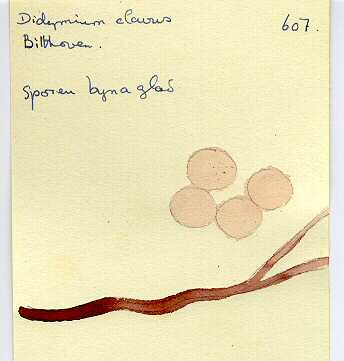 Didymium clavus
607.
Bilthoven.
Sporen byna glad